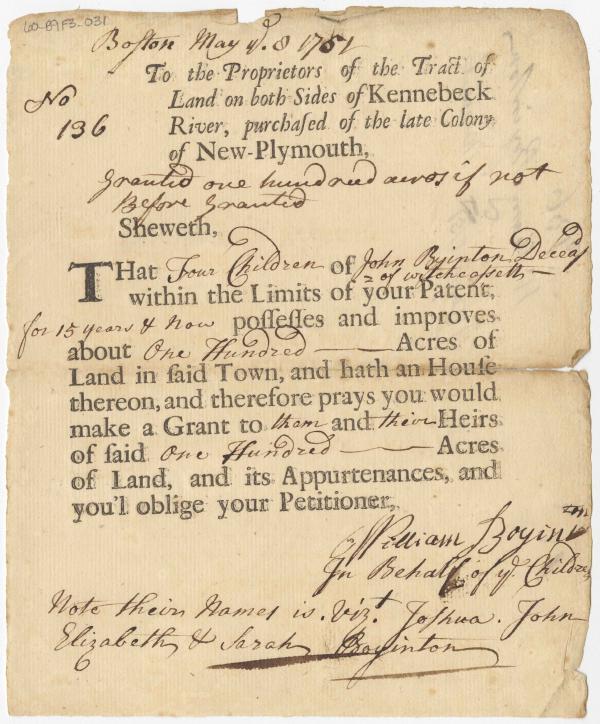 60-89F3-031
Boston May ye. 8 1751
To the Proprietors of the Tract of
No
Land on both Sides of Kennebeck
136
River, purchaſed of the late Colony
of New-Plymouth,
Granted one hundred acres if not
Before Granted
Sheweth,
THat Four Children of John Byinton Deceasd
= of witchcasseth —
within the Limits of your Patent,
for 15 years & Now poſſeſſes and improves
about One Hundred ——— Acres of
Land in ſaid Town, and hath an Houſe
thereon, and therefore prays you would
make a Grant to them and their Heirs
of ſaid One Hundred ——— Acres
of Land, and its Appurtenances, and
you'l oblige your Petitioner,
William Boyinton
In Behalf of ye. Children
Note their Names is. Vizt Joshua. John
Elizabeth & Sarah Boyinton